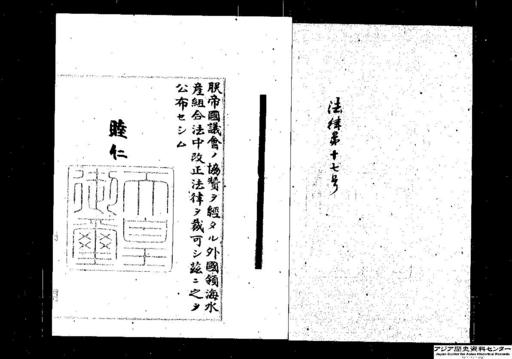 法律第十七号
朕帝國議會ノ協贊ヲ經タル外國領海水
産組合法中改正法律ヲ裁可シ玆ニ之ヲ
公布セシム
睦仁
天皇
御璽
アジア歴史資料センター
Japan Center for Asian Historical Records